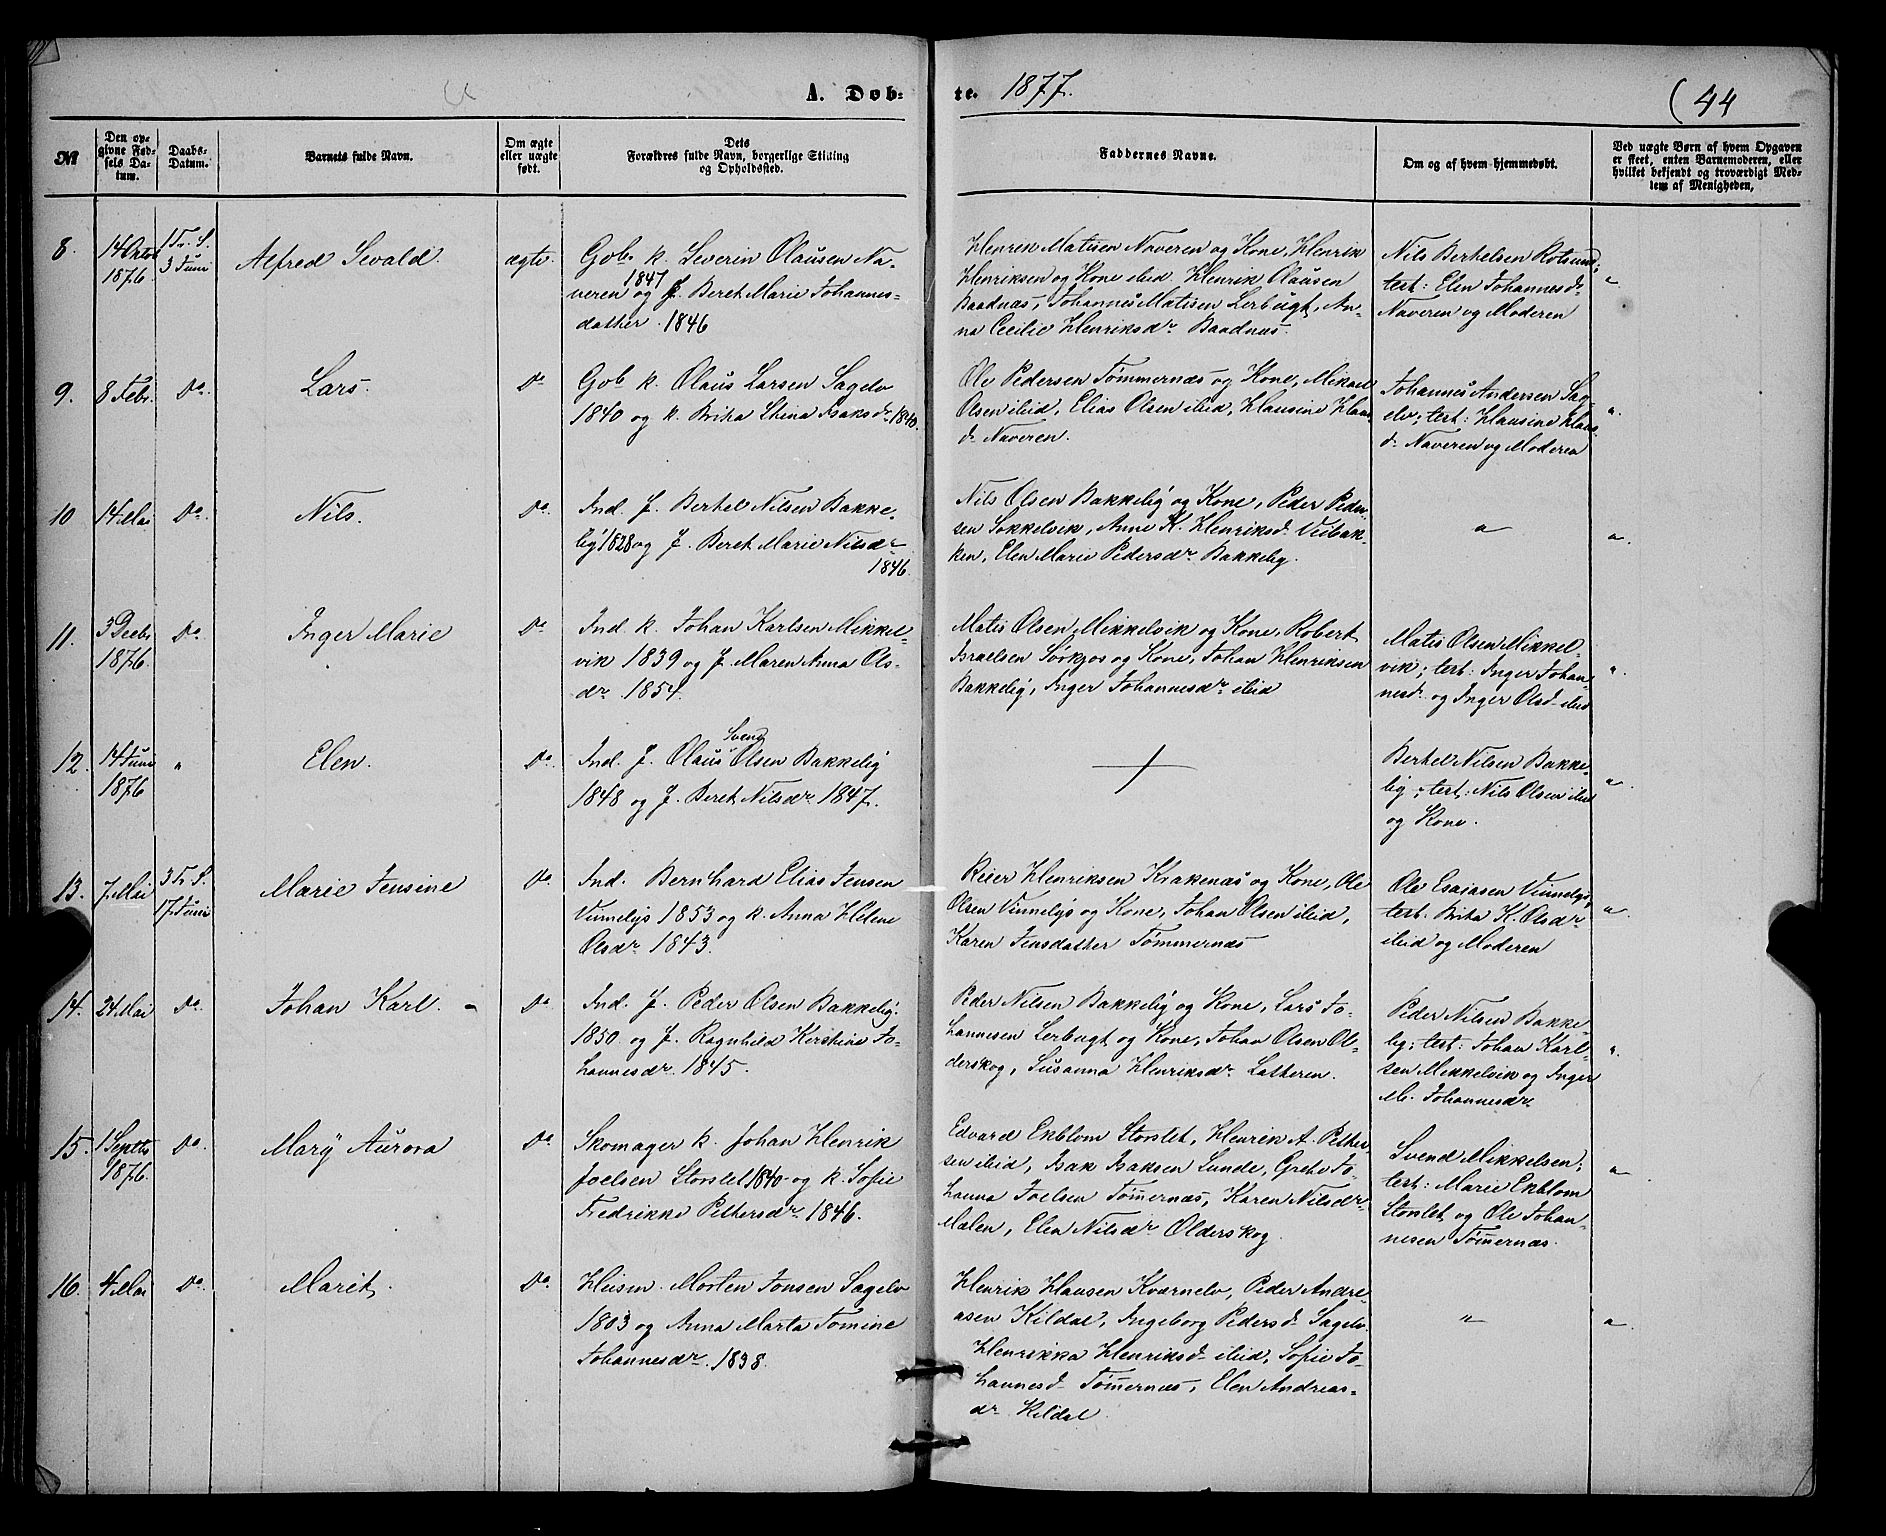 A. Døb-te. 1877.
(44
№
Den op-
givne Fød-
sels Da-
tum.
Daabs-
Datum.
Barnets fulde Navn.
Om ægte
eller uægte
født.
Dets
Forældres fulde Navn, borgerlige Stilling
og Opholdssted.
Faddernes Navne.
Om og af hvem hjemmedøbt.
Ved uægte Børn af hvem Opgaven
er skeet, enten Barnemoderen, eller
hvilket bekjendt og troværdigt Med-
lem af Menigheden.
8.
14 Oktob
1876.
1 Tr. S.
3 Juni
Alfred Sevald.
ægte.
Gob. k. Severin Olausen Na-
1847
veren og J. Beret Marie Johannes-
datter. 1846
Henrik Matisen Naveren og Kone, Henrik
Henriksen og Kone ibid, Henrik Olausen
Baadnæs, Johannes Matisen Lerbugt, An-
na Cecilie Henriksdr. Baadnæs.
Nils Bertelsen Rotsund;
test: Elen Johannesd.
Naveren og Moderen
"
9.
8 Febr.
Do.
Lars.
Do.
Gob k. Olaus Larsen Sagelv
1840 og k. Brita Stina Isaksdr. 1840.
Ole Pedersen Tømmernæs og Kone, Mikael
Olsen ibid, Elias Olsen ibid, Hansine Hans-
d. Naveren.
Johannes Andersen Sag-
elv; test: Hansine Hans-
d. Naveren og Moderen
".
10
14 Mai
Do.
Nils.
Do.
Ind. J. Bertel Nilsen Bakke-
lig 1828 og J. Beret Marie Nilsdr.
1846.
Nils Olsen Bakkelig og Kone, Peder Peder-
sen Sokkelvik, Anne K. Henriksd. Vidbak-
ken, Elen Marie Pedersdr. Bakkelig.
"
".
11.
3 Decbr
1876.
Do.
Inger Marie
Do.
Ind. k. Johan Karlsen Mikkel-
vik 1839 og J. Maren Anna Ols-
dr. 1854.
Matis Olsen Mikkelvik og Kone, Robert
Israelsen Sørkjos og Kone, Johan Henriksen
Bakkelig, Inger Johannesdr. ibid
Matis Olsen Mikkel-
vik; test: Inger Johan-
nesd. og Inger Olsd. ibid
".
12.
14 Juni
1876
"
Elen.
Do.
Svend
Ind. J. Olaus Olsen Bakkelig
1848 og J. Beret Nilsdr. 1847.
+
Bertel Nilsen Bakke-
lig; test: Nils Olsen ibid
og Kone.
".
13.
7 Mai
3 Tr. S.
17 Juni
Marie Jensine
Do.
Ind. Bernhard Elias Jensen
Vinnelys 1853 og k. Anna Helene
Olsdr. 1843.
Reier Henriksen Krakenæs og Kone, Ole
Olsen Vinnelys og Kone, Johan Olsen ibid,
Karen Jensdatter Tømmernæs
Ole Esaiasen Vinnelys;
test. Brita K. Olsdr
ibid og Moderen
".
14.
24 Mai
Do.
Johan Karl. -
Do
Ind. J. Peder Olsen Bakkelig.
1850. og J. Ragnhild Kerstine Jo-
hannesdr. 1845.
Peder Nilsen Bakkelig og Kone, Lars Jo-
hannesen Lerbugt og Kone, Johan Olsen Ol-
derskog, Susanna Henriksdr. Latteren.
Peder Nilsen Bakke-
lig; test: Johan Karl-
sen Mikkelvik og Inger
M. Johannesdr
".
15.
1 Septbr
1876.
Do.
Mary Aurora
Do.
Skomager k. Johan Henrik
Joelsen Storslet 1840 og k. Sofie
Fredrikke Pettersdr. 1846.
Edvard Ekblom Storslet, Henrik A. Petter-
sen ibid, Isak Isaksen Sunde, Grete Jo-
hanna Joelsen Tømernæs, Karen Nilsdr.
Mælen, Elen Nilsdr. Olderskog.
Svend Mikkelsen;
test: Marie Ekblom
Storslet og Ole Johan-
nesen Tømernæs.
"
16.
4 Mai
Do.
Marit.
Do.
Huism. Morten Jonsen Sagelv
1803 og Anna Marta Tomine
Johannesdr. 1838.
Henrik Hansen Kværnelv, Peder Andre-
asen Kildal, Ingeborg Pedersd. Sagelv.
Henrikka Henriksd. ibid, Sofie Jo-
hannesd. Tømernæs, Elen Andreas-
dr. Kildal.
"
".